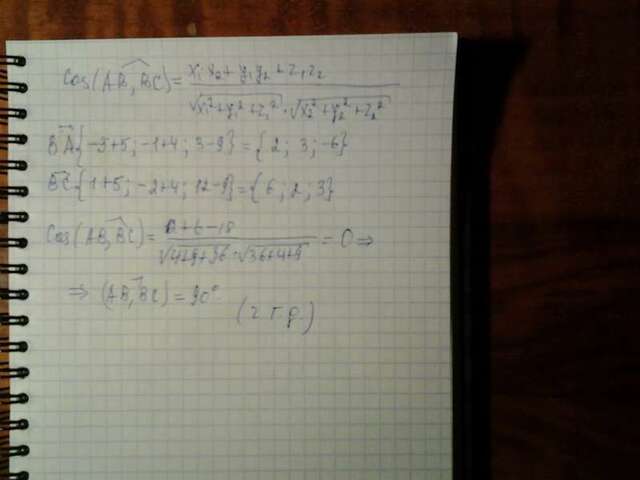 Cos(AB, BC) = x₁x₂ + y₁y₂ + z₁z₂ / √x₁² + y₁² + z₁² · √x₂² + y₂² + z₂²
BA {-3+5; -1+4; 3-9} = {2; 3; -6}
BC {1+5; -2+4; 12-9} = {6; 2; 3}
Cos(AB, BC) = 12+6-18 / √4+9+36 · √36+4+9 = 0 ⇒
⇒ (AB, BC) = 90°
(ч.т.д.)